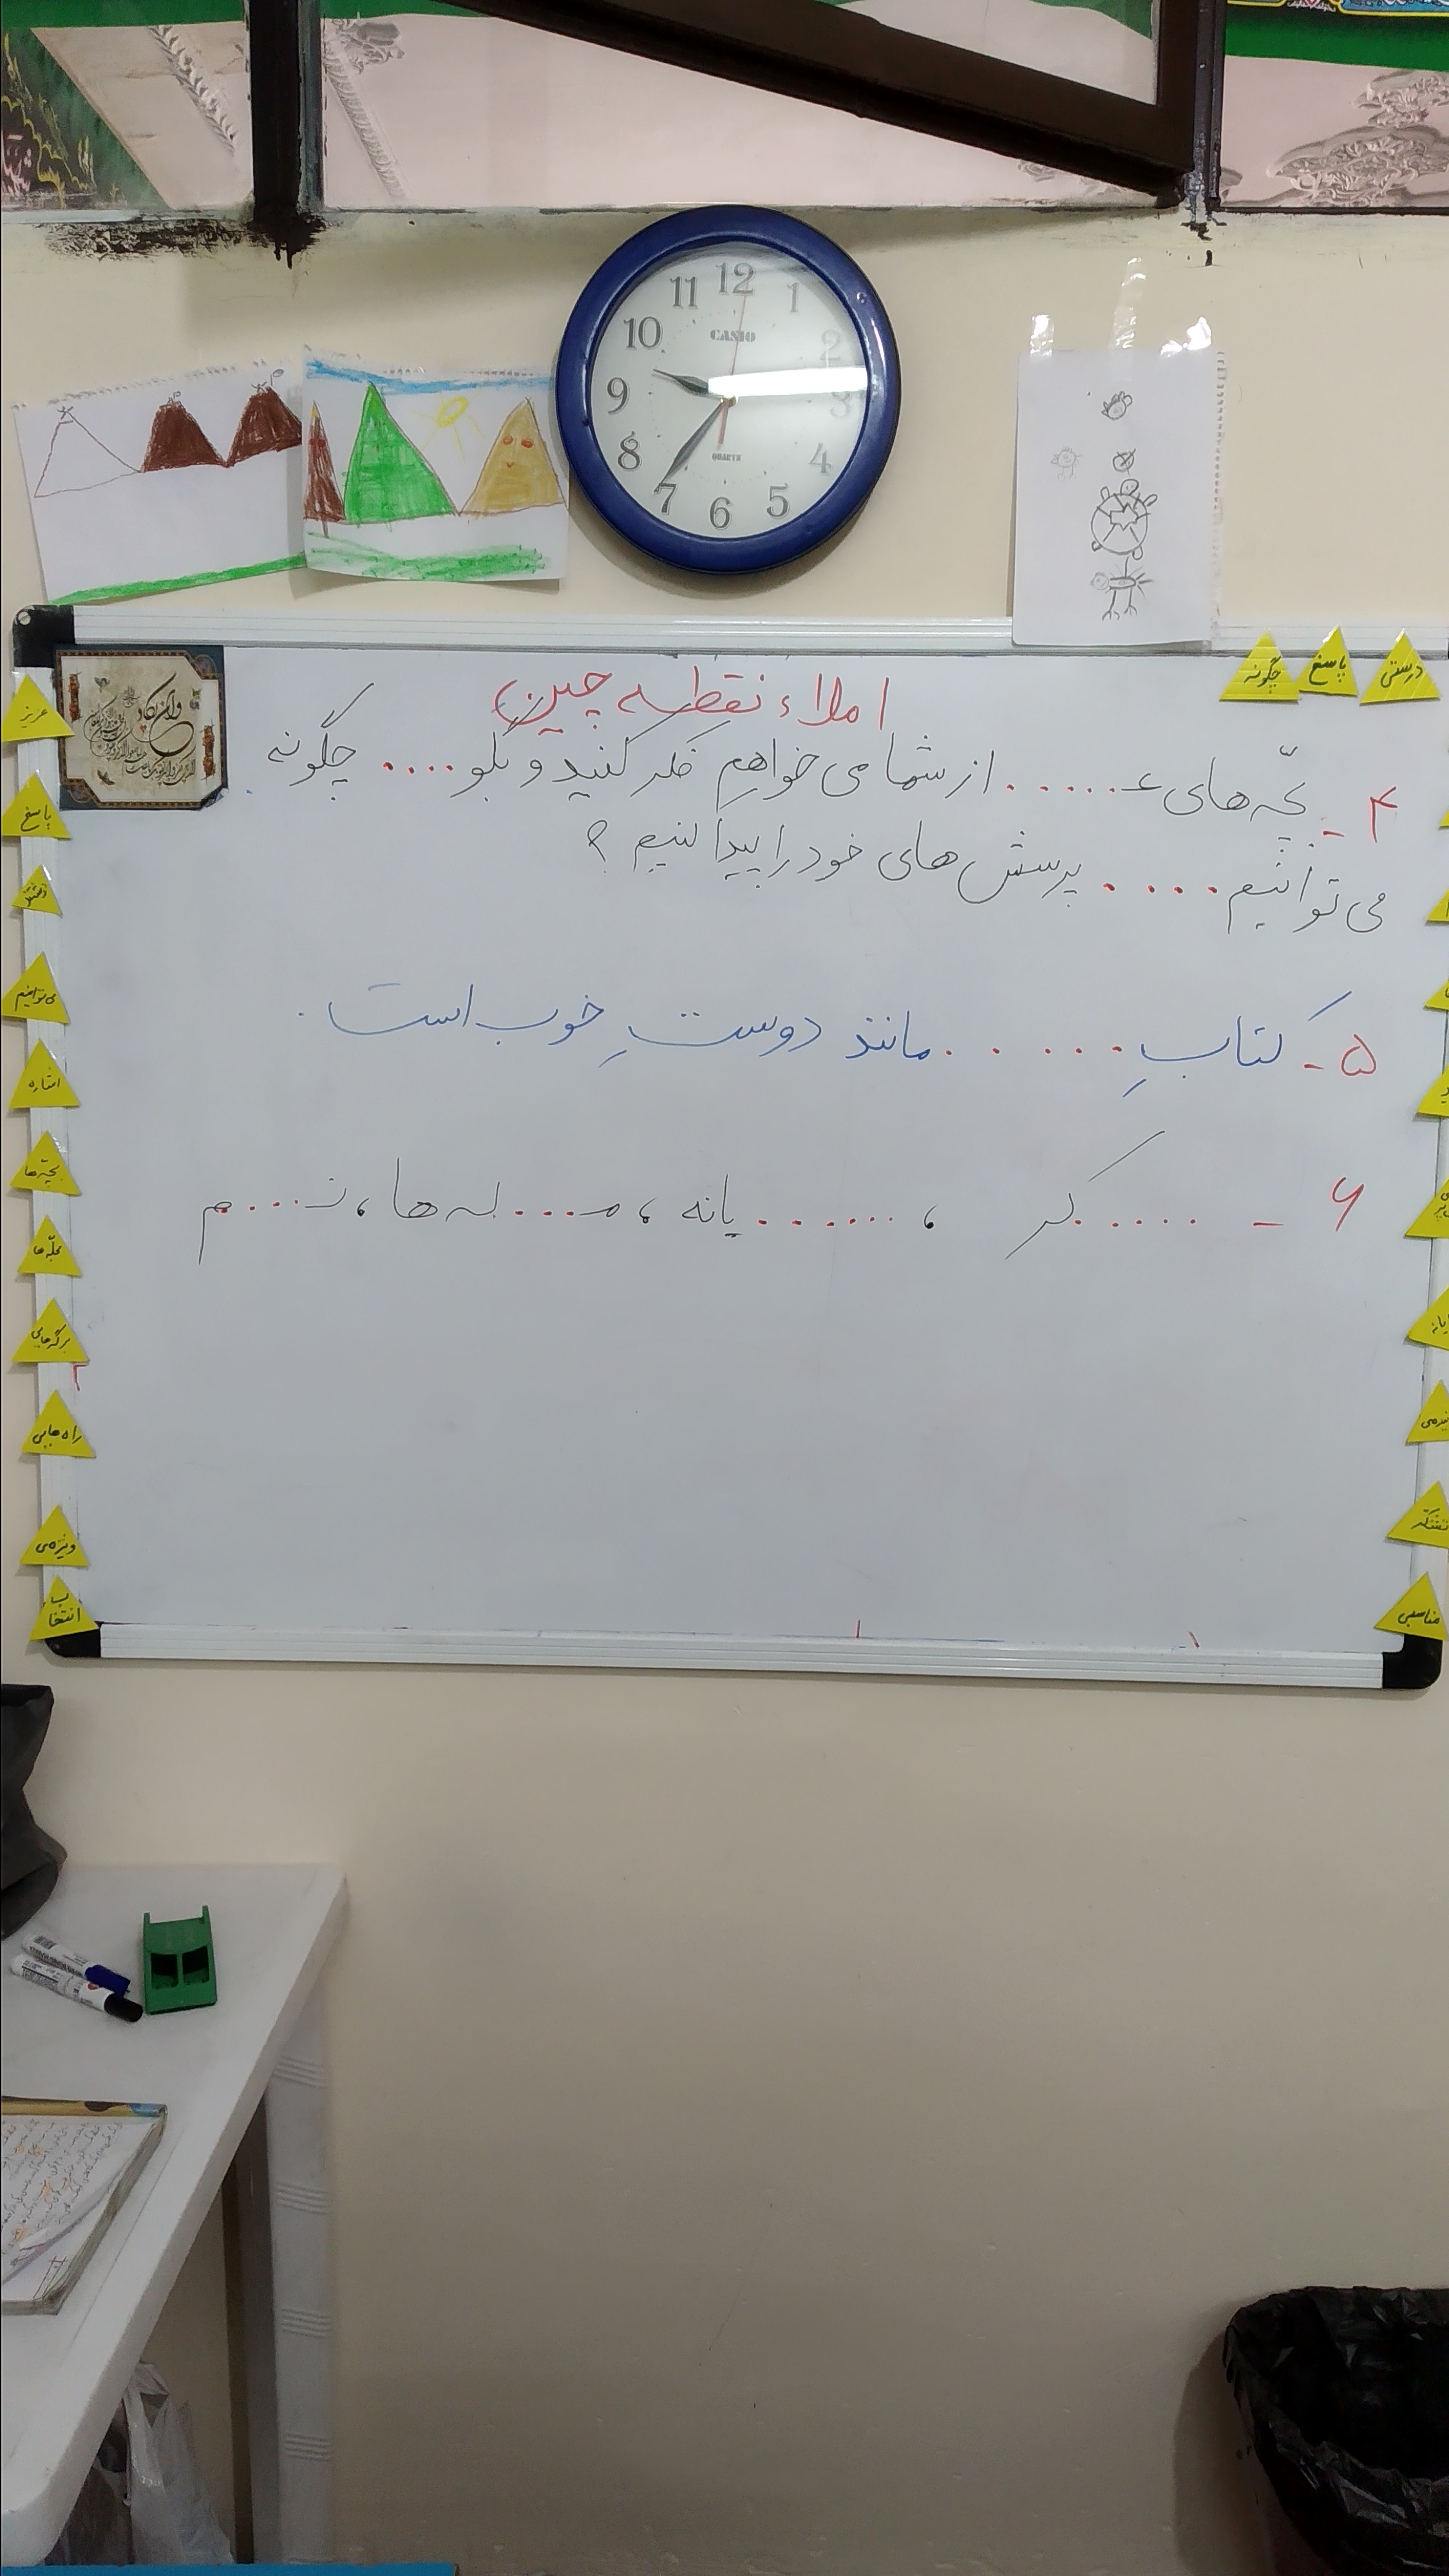 12
11
1
10
2
9
3
8
4
7
5
6
CASIO
QUARTZ
درستی
پاسخ
چگونه
املاء نقطه چین
۴ - بچّه های ع...... از شما می خواهم فکر کنید و بگو.... چگونه
می توانیم .... پرسش های خود را پیدا کنیم ؟
۵ - کتابِ ...... مانند دوستِ خوب است .
۶ - ..... گر ، ....... یانه ، مـ.... له ها ، نـ....م
وان یکاد
عزیز
پاسخ
می توانیم
اشاره
بچّه ها
مجلّه ها
برگه هایی
راه هایی
ویژه‌ی
انتخاب
مناسبی